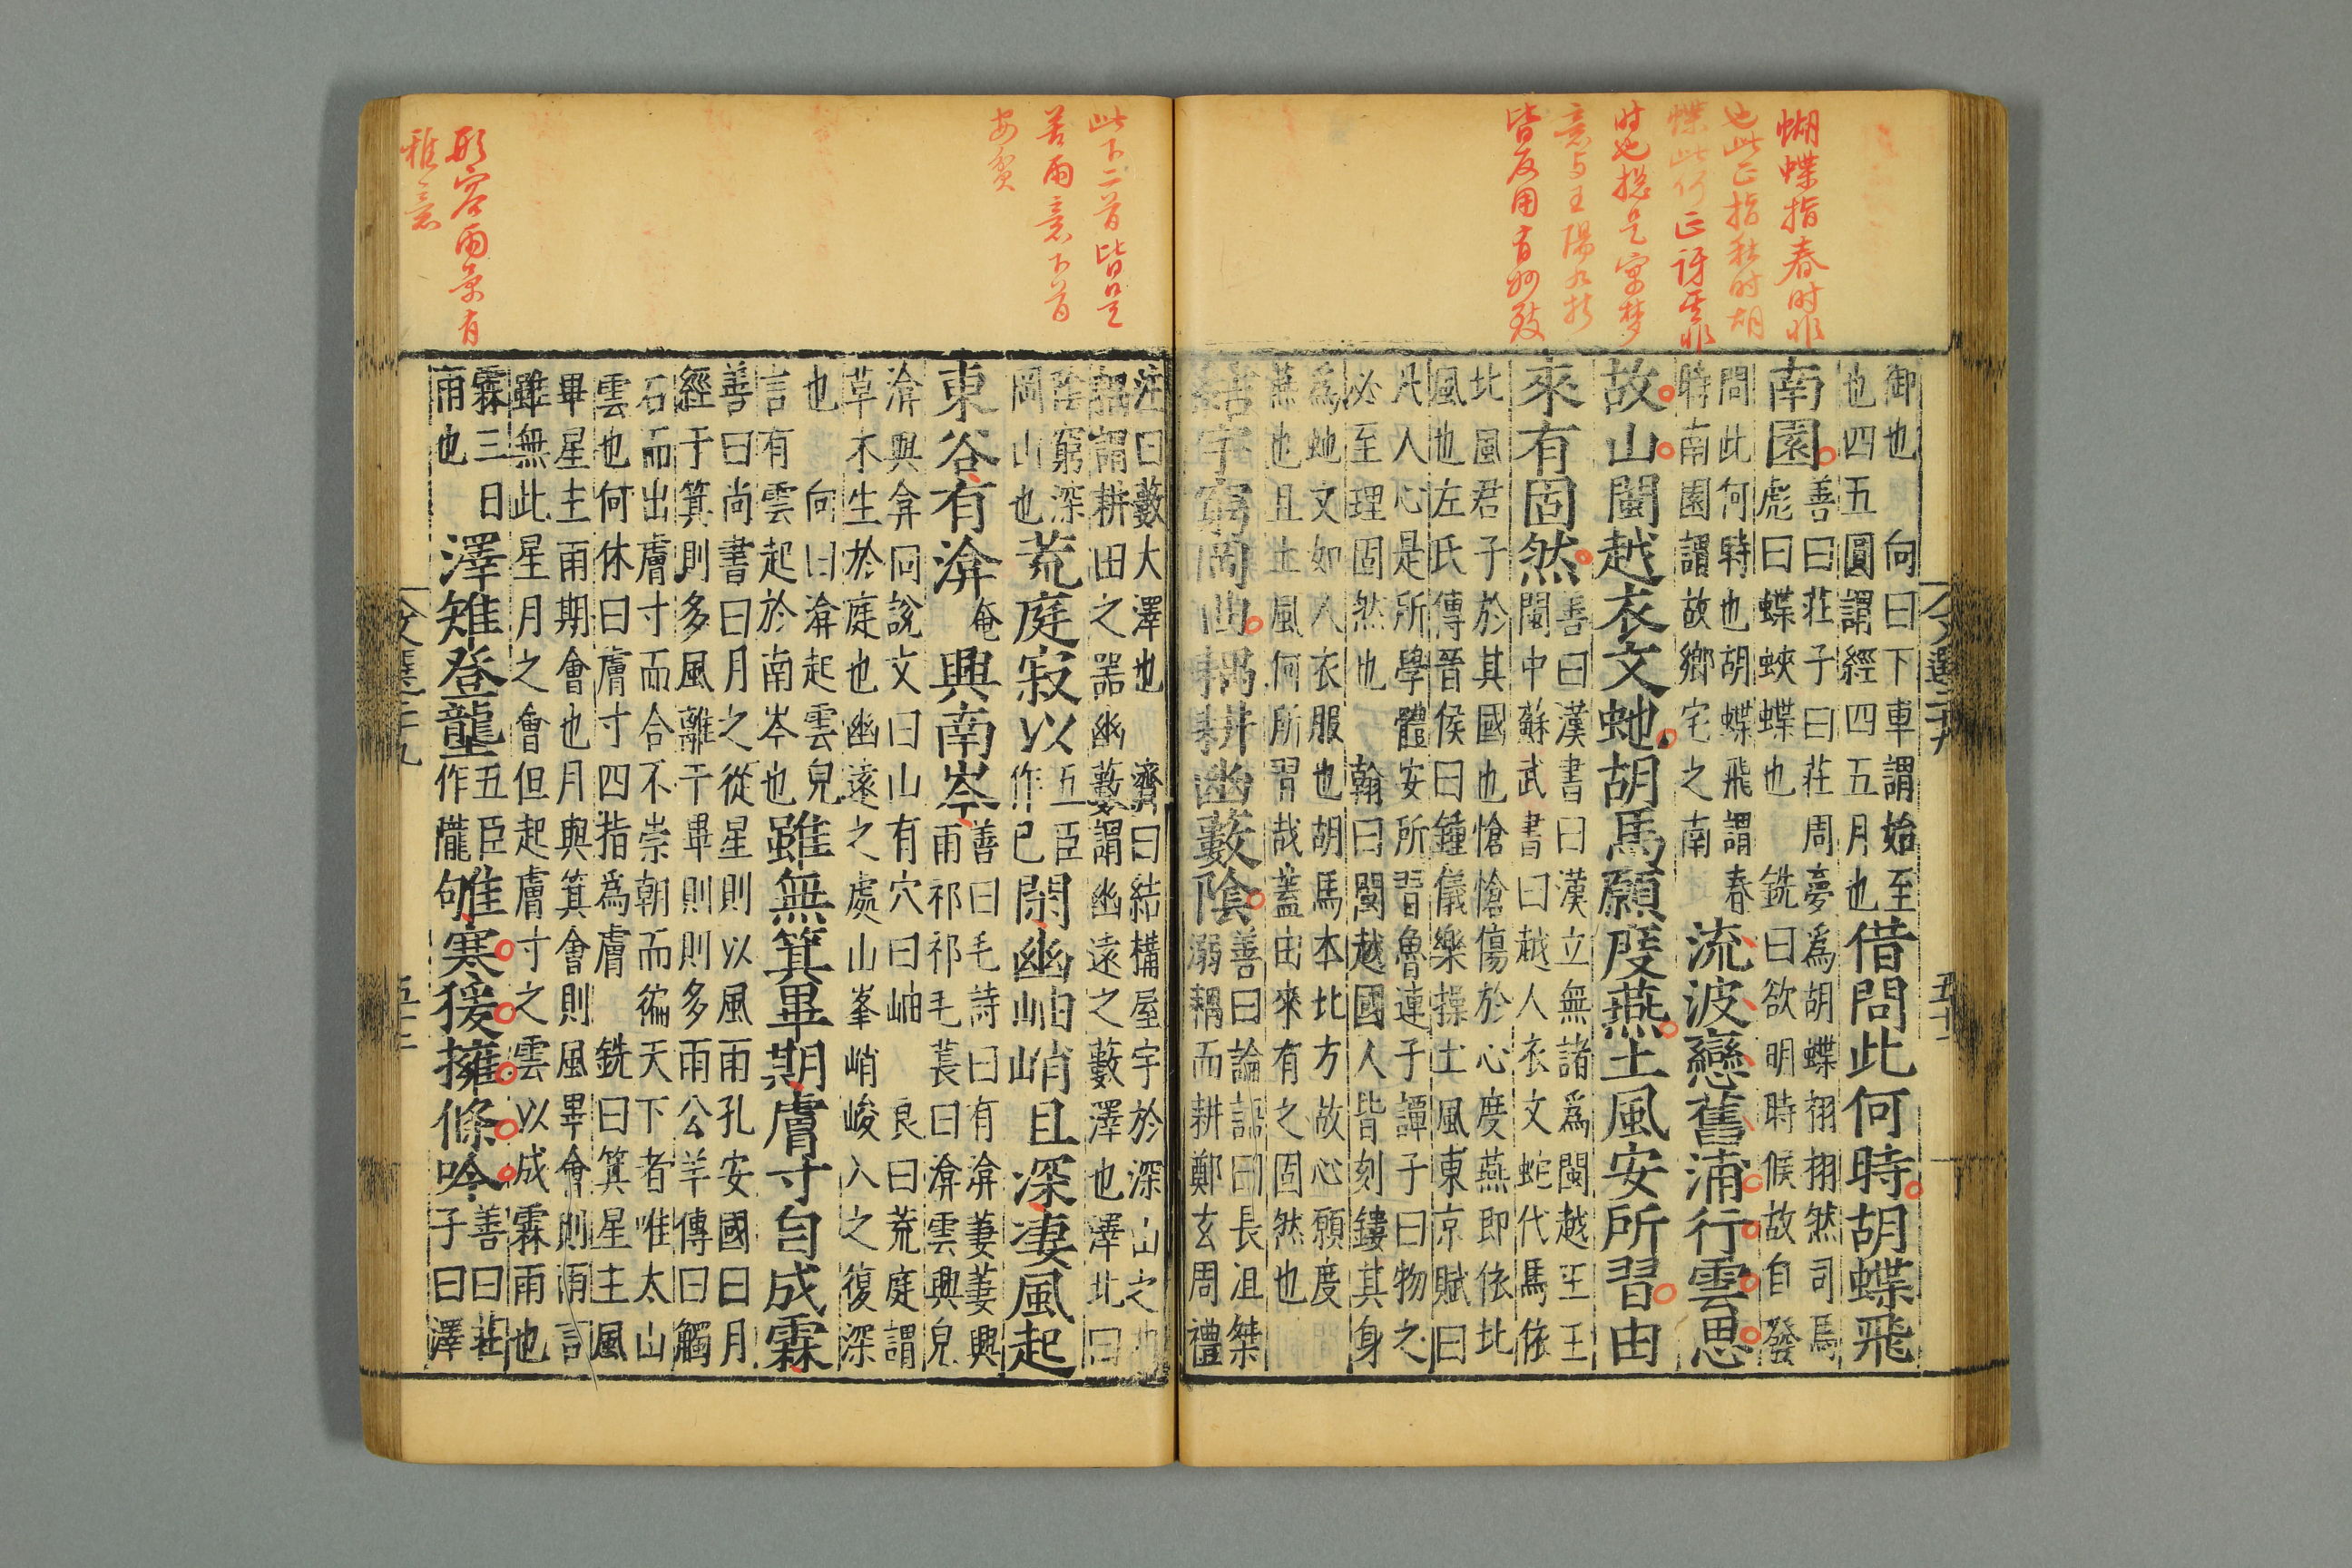 蝴蝶指春时非
也此正指秋时胡
蝶此何正訝其非
时也揔是寓梦
皆反用有妙致
御也 向曰下車謂始至
也四五圓謂經四五月也
借問此何時胡蝶飛
南園
善曰莊子曰莊周夢為胡蝶栩栩然司馬
彪曰蝶蛺蝶也 銑曰欲明時候故自發
問此何時也胡蝶飛謂春
時南園謂故鄉宅之南
流波戀舊浦行雲思
故山閩越衣文虵胡馬願度燕土風安所習由
來有固然
善曰漢書曰漢立無諸為閩越王王
閩中蘇武書曰越人衣文蛇代馬依
北風君子於其國也愴愴傷於心度燕即依北
風也左氏傳晉侯曰鍾儀樂操土風東京賦曰
凡人心是所學體安所習魯連子譚子曰物之
必至理固然也 翰曰閩越國人皆刻鏤其身
為虵文如人衣服也胡馬本北方故心願度
燕也且土風何所習哉蓋由來有之固然也
結宇窮岡曲耦耕幽藪陰
善曰論語曰長沮桀
溺耦而耕鄭玄周禮
此下二首皆是
苦雨意下首
安貧
形容雨景有
雅意
注曰藪大澤也 濟曰結構屋宇於深山之也
耦謂耕田之器幽藪謂幽遠之藪澤也澤北曰
陰窮深
岡山也
荒庭寂以
五臣
作已
閑幽岫峭且深凄風起
東谷有渰
奄
興南岑
善曰毛詩曰有渰萋萋興
雨祁祁毛萇曰渰雲興皃
渰與弇同說文曰山有穴曰岫 良曰荒庭謂
草不生於庭也幽遠之處山峯峭峻入之復深
也 向曰渰起雲皃
言有雲起於南岑也
雖無箕畢期膚寸自成霖
善曰尚書曰月之從星則以風雨孔安國曰月
經于箕則多風離于畢則多雨公羊傳曰觸
石而出膚寸而合不崇朝而徧天下者唯太山
雲也何休曰膚寸四指為膚 銑曰箕星主風
畢星主雨期會也月與箕會則風畢會則雨言
雖無此星月之會但起膚寸之雲以成霖雨也
霖三日
雨也
澤雉登壟
五臣
作隴
雊寒猨擁條吟
善曰莊
子曰澤